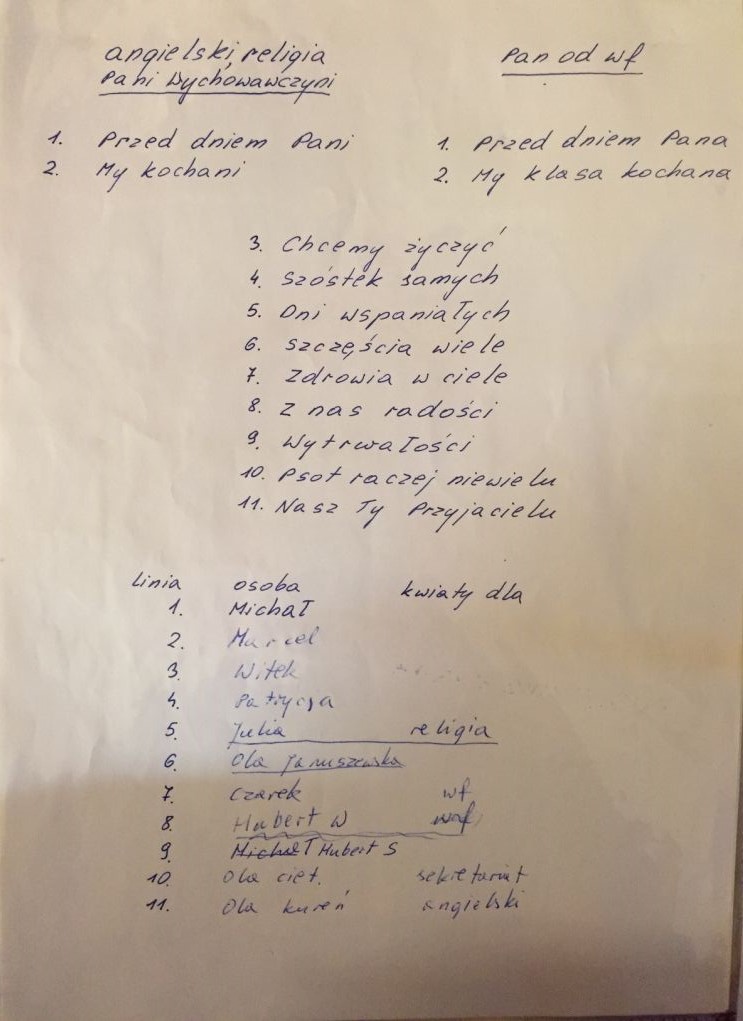 angielski, religia
Pani Wychowawczyni
Pan od wf
1. Przed dniem Pani
2. My kochani
1. Przed dniem Pana
2. My klasa kochana
3. Chcemy życzyć
4. Szóstek samych
5. Dni wspaniałych
6. Szczęścia wiele
7. Zdrowia w ciele
8. Z nas radości
9. Wytrwałości
10. Psot raczej niewielu
11. Nasz Ty Przyjacielu
linia osoba kwiaty dla
1. Michał
2. Marcel
3. Witek
4. Patrycja
5. Julia religia
6. Ola Januszewska
7. Czarek wf
8. Hubert W wf
9. Michał Hubert S
10. Ola ciet. sekretariat
11. Ola kureń angielski